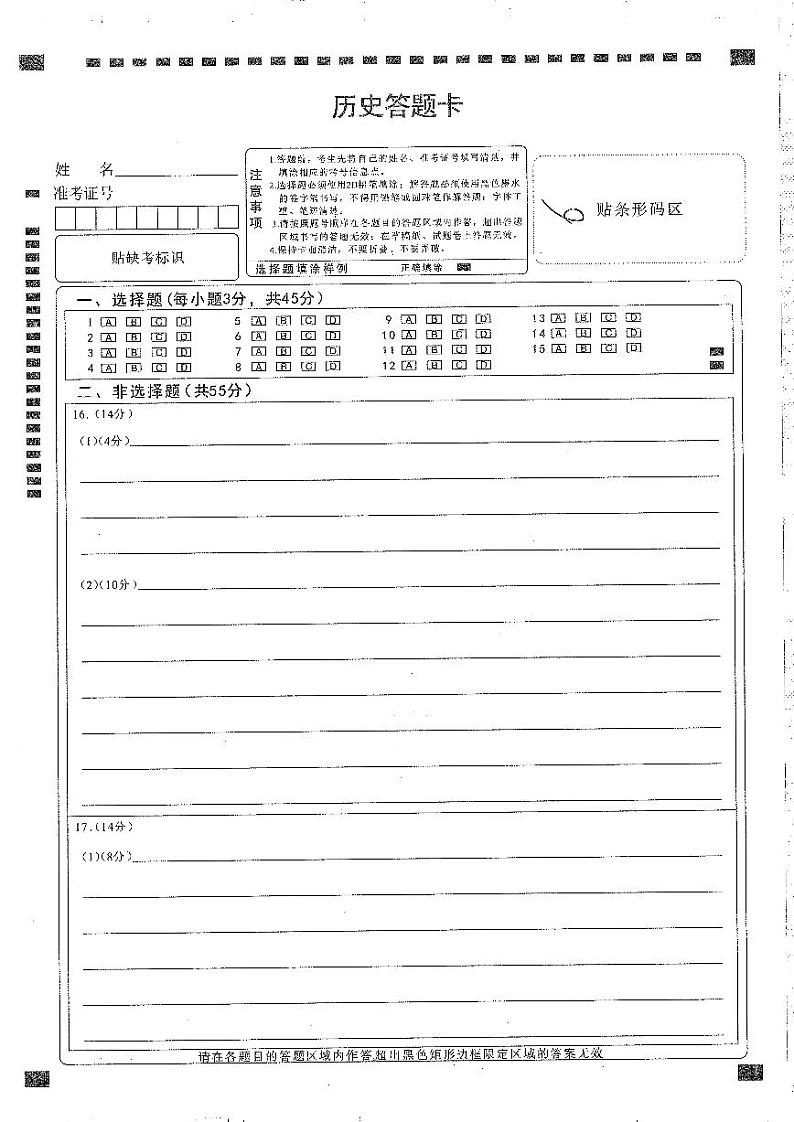 历史答题卡
姓 名
准考证号
贴缺考标识
注意事项
1.答题前，考生先将自己的姓名、准考证号填写清楚，并
填涂相应的考号信息点。
2.选择题必须使用2B铅笔填涂；解答题必须使用黑色墨水
的签字笔书写，不得用铅笔或圆珠笔作解答题；字体工
整、笔迹清楚。
3.请按照题号顺序在各题目的答题区域内作答，超出答题
区域书写的答题无效；在草稿纸、试题卷上答题无效。
4.保持卡面清洁，不要折叠、不要弄破。
选择题填涂样例 正确填涂
贴条形码区
一、选择题(每小题3分，共45分)
1 A B C D 5 A B C D 9 A B C D 13 A B C D
2 A B C D 6 A B C D 10 A B C D 14 A B C D
3 A B C D 7 A B C D 11 A B C D 15 A B C D
4 A B C D 8 A B C D 12 A B C D
二、非选择题(共55分)
16.(14分)
(1)(4分)
(2)(10分)
17.(14分)
(1)(8分)
请在各题目的答题区域内作答,超出黑色矩形边框限定区域的答案无效